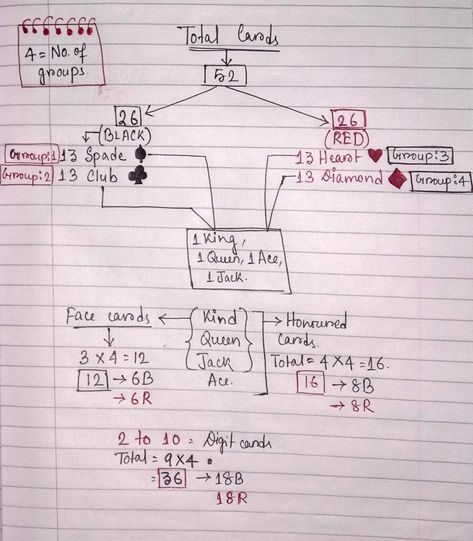 4 = No. of
groups.
Total Cards
52
26
(BLACK)
26
(RED)
Group:1 13 Spade ♠
Group:2 13 Club ♣
13 Heart ♥ Group:3
13 Diamond ♦ Group:4
1 King,
1 Queen, 1 Ace,
1 Jack.
Face cards ← Kind
Queen
Jack
Ace.
→ Honoured
Cards.
3 X 4 = 12
12 → 6B
→ 6R
Total = 4 X 4 = 16.
16 → 8B
→ 8R
2 to 10 = Digit cards
Total = 9 X 4 •
= 36 → 18B
18R